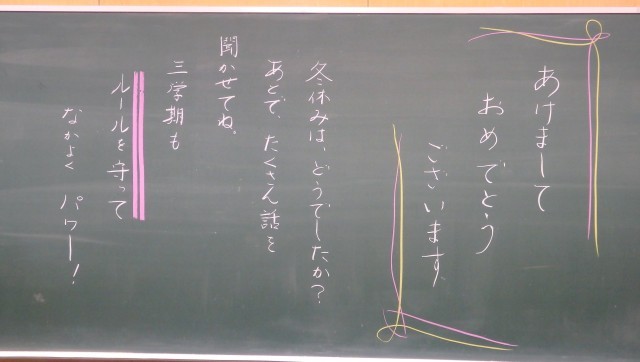 あけまして
おめでとう
ございます。
冬休みは、どうでしたか?
あとで、たくさん話を
聞かせてね。
三学期も
ルールを守って
なかよく パワー!